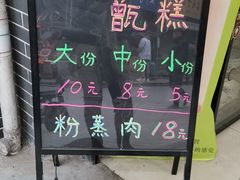 甑糕
大份 中份 小份
10元 8元 5元
粉蒸肉 18元